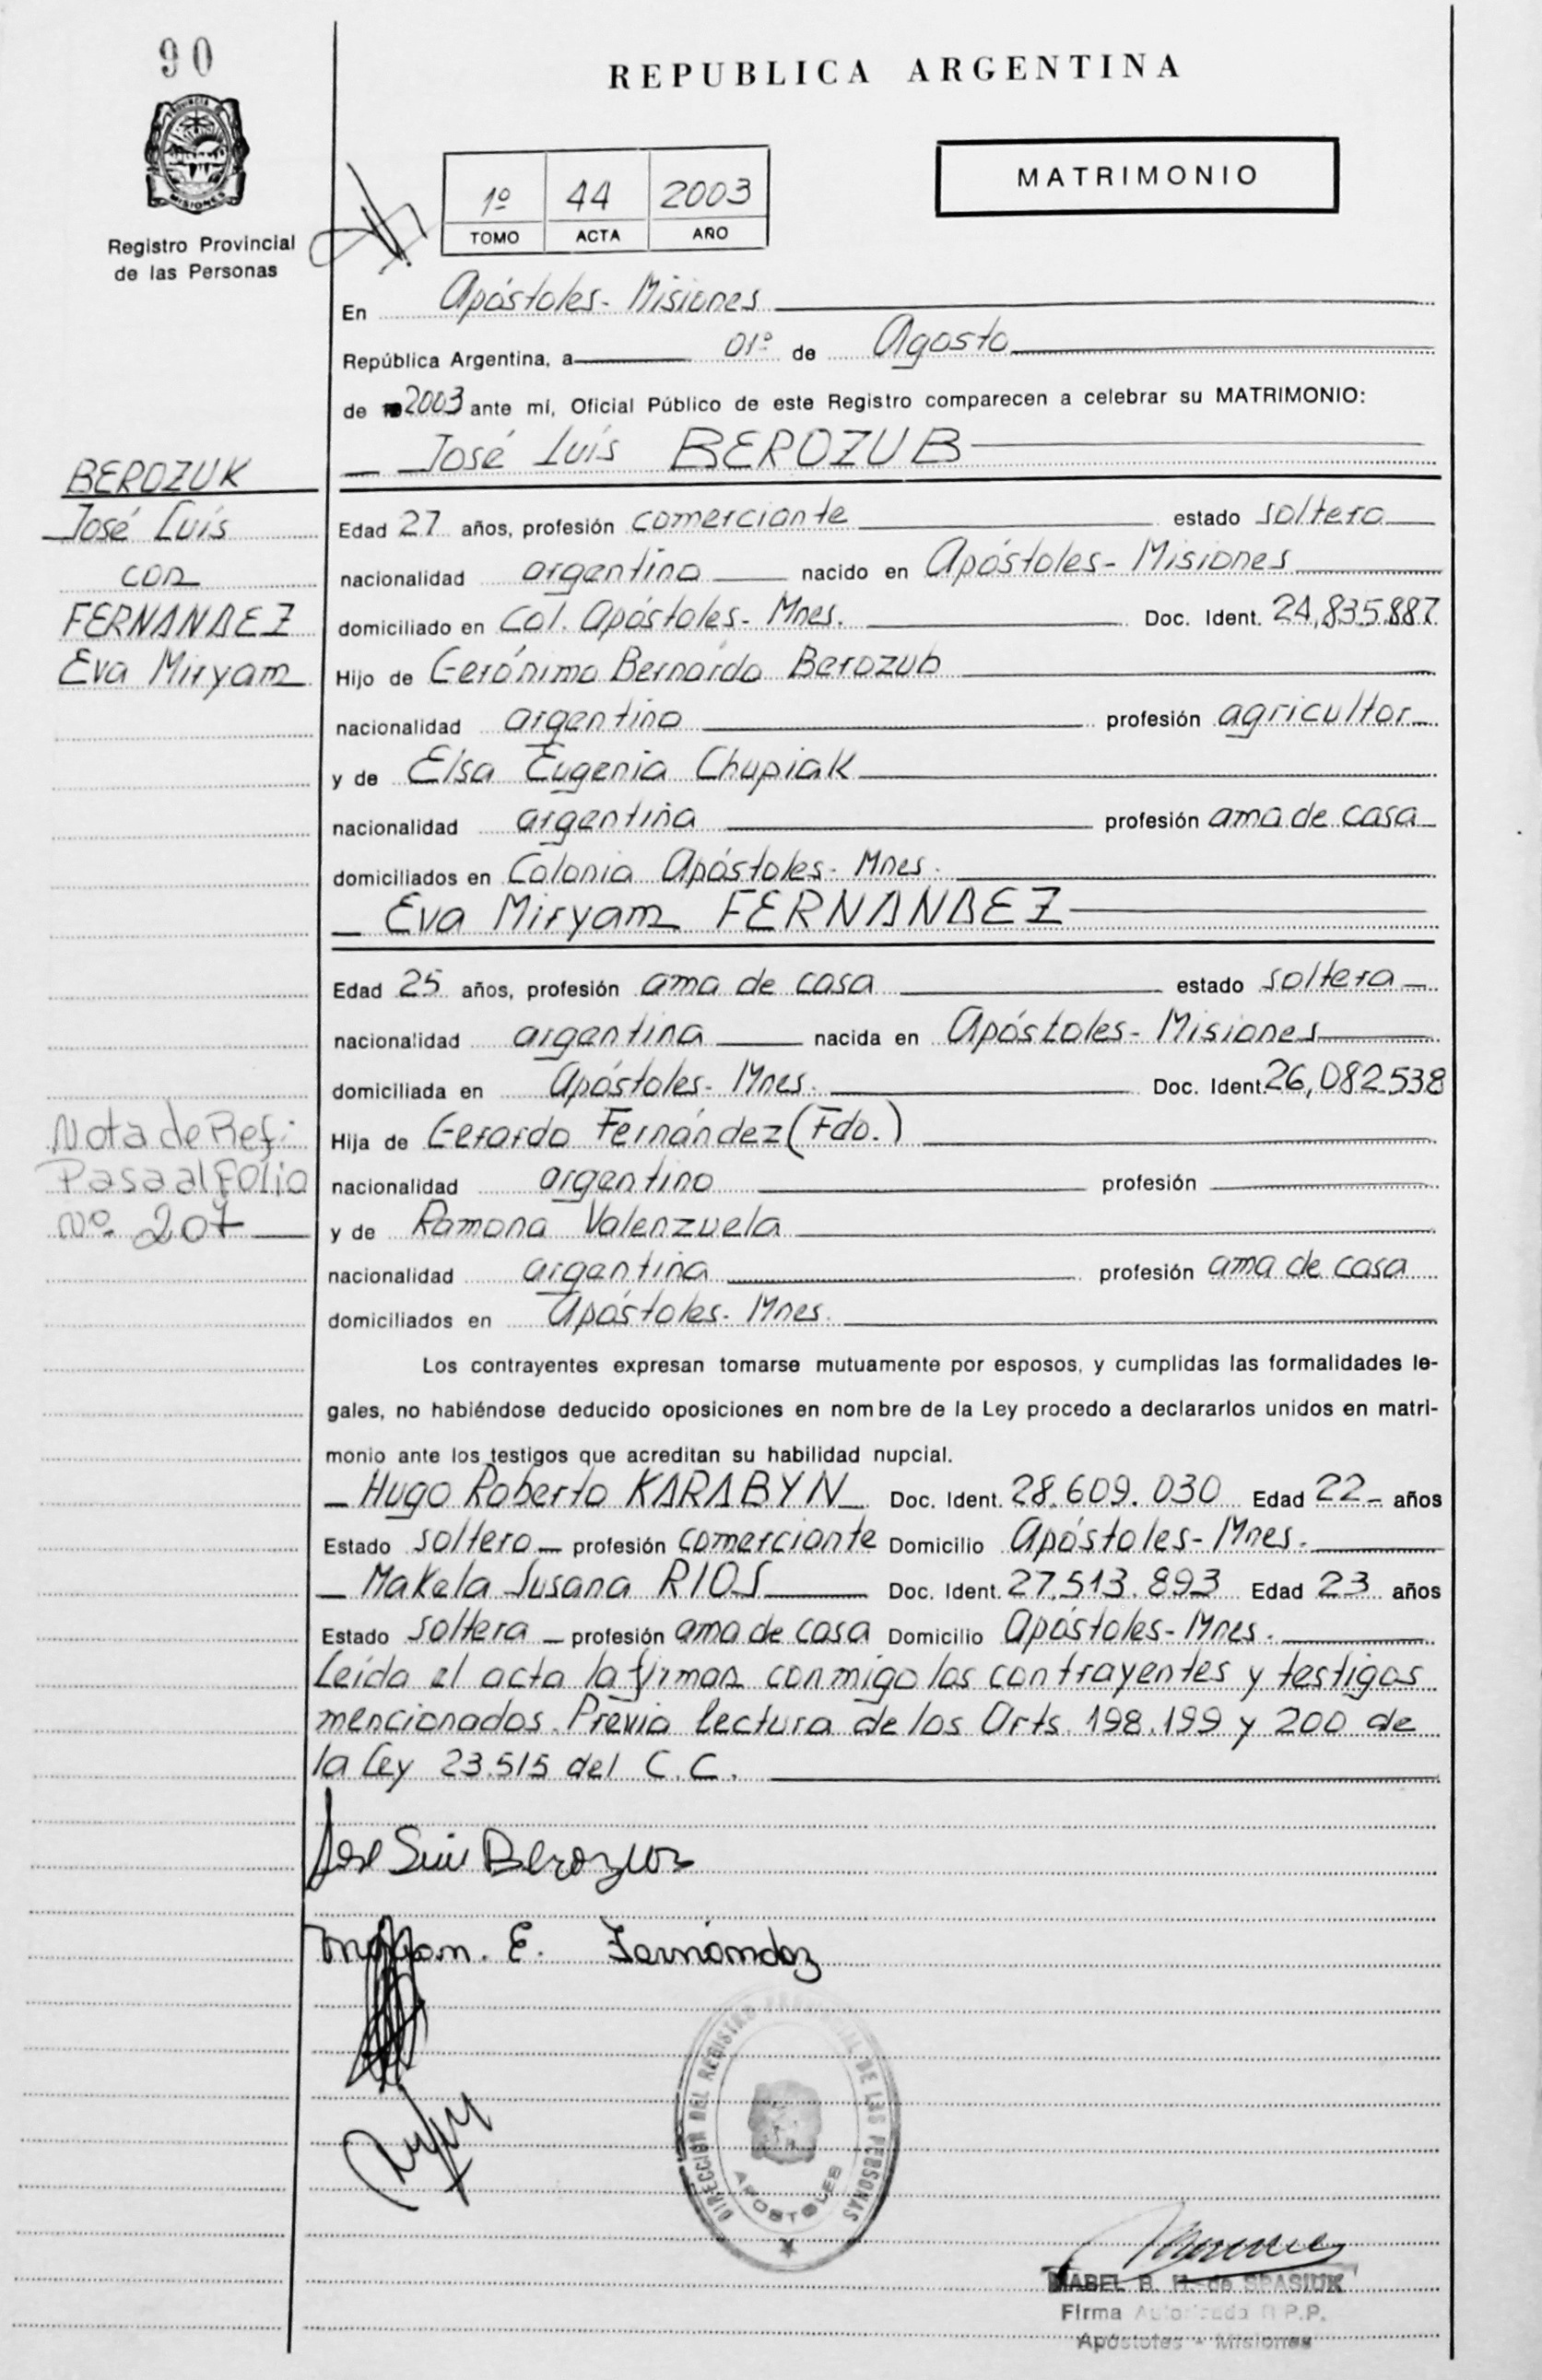 90
REPUBLICA ARGENTINA
MATRIMONIO
PROVINCIA DE
MISIONES
Registro Provincial
de las Personas
1º 44 2003
TOMO ACTA AÑO
En Apóstoles- Misiones
República Argentina, a 01º de Agosto
de 2003 ante mí, Oficial Público de este Registro comparecen a celebrar su MATRIMONIO:
José Luis BEROZUB
BEROZUK
José Luis
con
FERNANDEZ
Eva Miryam
Edad 27 años, profesión comerciante estado soltero
nacionalidad argentino nacido en Apóstoles- Misiones
domiciliado en Col. Apóstoles- Mnes. Doc. Ident. 24,835.887
Hijo de Gerónimo Bernardo Berozub
nacionalidad argentino profesión agricultor
y de Elsa Eugenia Chupiak
nacionalidad argentina profesión ama de casa
domiciliados en Colonia Apóstoles- Mnes.
Eva Miryam FERNANDEZ
Edad 25 años, profesión ama de casa estado soltera
nacionalidad argentina nacida en Apóstoles- Misiones
domiciliada en Apóstoles- Mnes. Doc. Ident. 26,082.538
Nota de Ref:
Pasa al Folio
Nº 207
Hija de Gerardo Fernández (Fdo.)
nacionalidad argentino profesión
y de Ramona Valenzuela
nacionalidad argentina profesión ama de casa
domiciliados en Apóstoles- Mnes.
Los contrayentes expresan tomarse mutuamente por esposos, y cumplidas las formalidades le-
gales, no habiéndose deducido oposiciones en nombre de la Ley procedo a declararlos unidos en matri-
monio ante los testigos que acreditan su habilidad nupcial.
Hugo Roberto KARABYN Doc. Ident. 28.609.030 Edad 22 años
Estado soltero profesión comerciante Domicilio Apóstoles- Mnes.
Makela Susana RIOS Doc. Ident. 27.513.893 Edad 23 años
Estado soltera profesión ama de casa Domicilio Apóstoles- Mnes.
Leída el acta la firman conmigo los contrayentes y testigos
mencionados. Previa lectura de los Arts. 198.199 y 200 de
la Ley 23.515 del C.C.
José Luis Berozub
E. Fernández
DIRECCION DEL REGISTRO PROVINCIAL DE LAS PERSONAS
APOSTOLES
MABEL B. H. de SPASIUK
Firma Autorizada R.P.P.
Apóstoles - Misiones